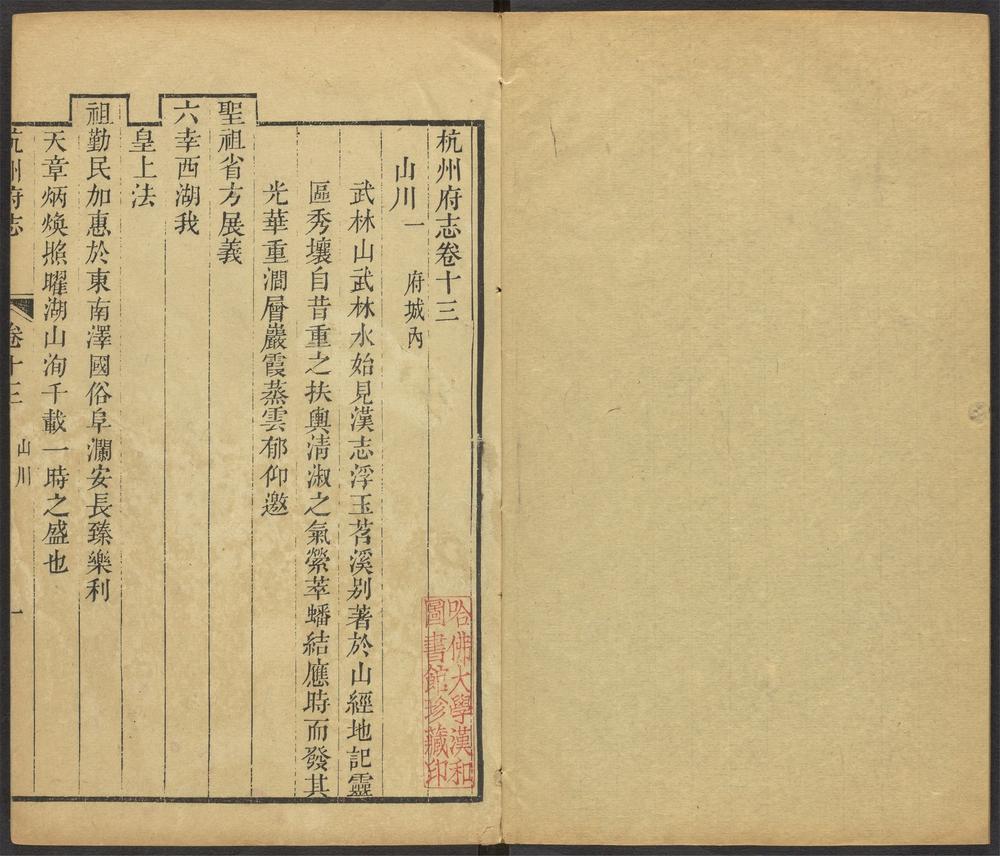 杭州府志卷十三
山川一 府城內
武林山武林水始見漢志浮玉苕溪别著於山經地記靈
區秀壤自昔重之扶輿淸淑之氣縈萃蟠結應時而發其
光華重澗層巖霞蒸雲郁仰邀
聖祖省方展義
六幸西湖我
皇上法
祖勤民加惠於東南澤國俗阜瀾安長臻樂利
天章炳煥照曜湖山洵千載一時之盛也
杭州府志 卷十三 山川 一
哈佛大學漢和
圖書館珍藏印